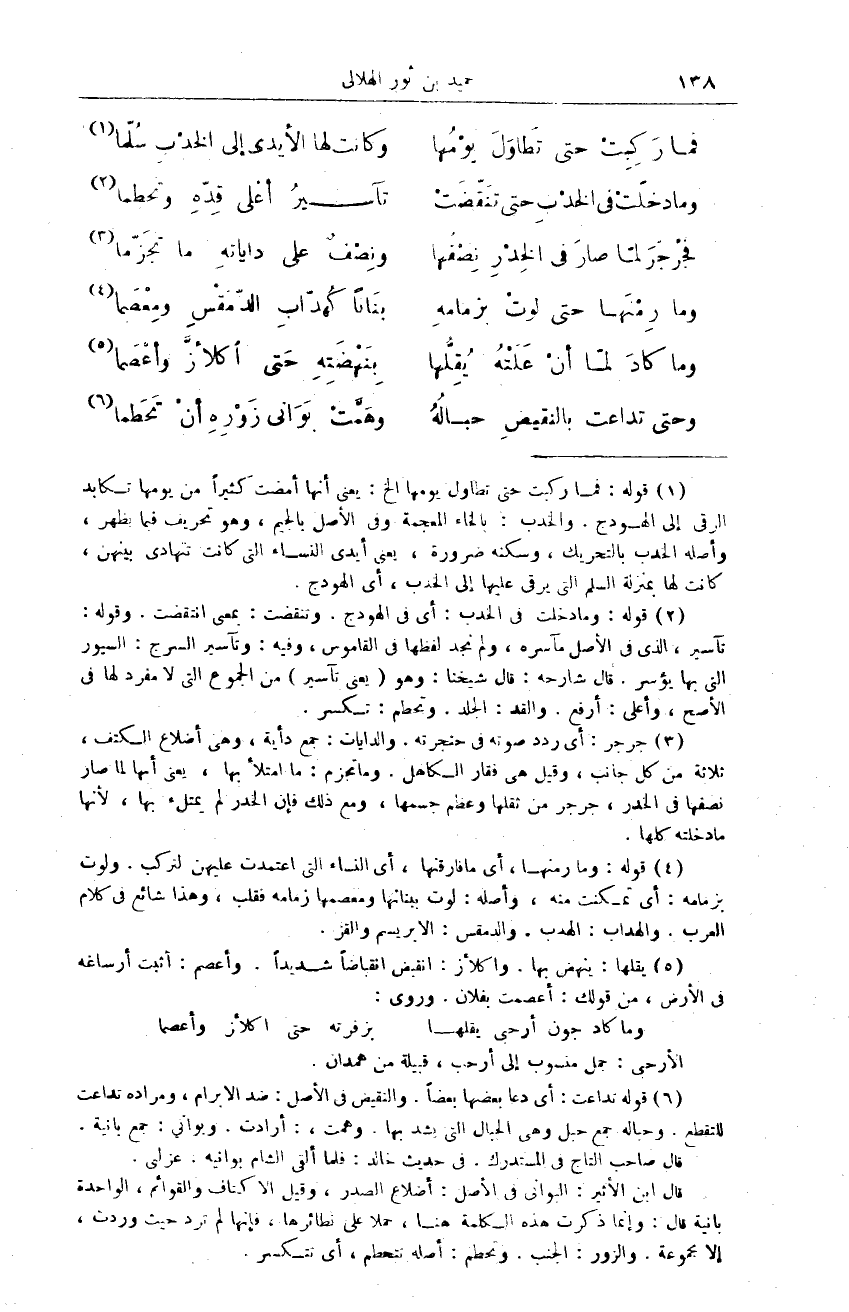 ١٣٨ حميد بن ثور الهلالى
فمـا رَكِبتْ حتى تَطَاوَلَ يوْمُها وكانت لها الأيدى إلى الخدْبِ سُلَّما (١)
ومادخلَتْ فى الخدْبِ حتى تنَقّضَتْ تآسـيرُ أعْلى قِدِّهِ وتحَطما (٢)
فَجَرْجَرَ لمّـا صارَ فى الخِدْرِ نِصْفُها ونِصْفٌ على داياتهِ ما تجَزَّما (٣)
وما رِمْنَهـا حتى لوتْ بزمامهِ بنَانًا كَهدّابِ الدّمَقْسِ ومِعْصَما (٤)
وما كادَ لمّـا أنْ عَلَتْهُ يُقِلُّها بِنَهْضَتِهِ حَتى اكلأزَّ وأعْصَما (٥)
وحتى تداعت بالنقيضِ حبـالُهُ وهَمَّتْ بَوَانى زَوْرِهِ أنْ تَحَطما (٦)
(١) قوله : فمـا ركبت حتى تطاول يومها الخ : يعنى أنها أمضت كثيراً من يومها تـكابد
الرقى إلى الهـودج . والخدب : بالخاء المعجمة وفى الأصل بالجيم ، وهو تحريف فيما يظهر ،
وأصله الخدب بالتحريك ، وسكنه ضرورة ، يعنى أيدى النسـاء التى كانت تتهادى بينهن ،
كانت لها بمنزلة السلم التى يرقى عليها إلى الخدب ، أى الهودج .
(٢) قوله : ومادخلت فى الخدب : أى فى الهودج . وتنقضت : بمعى انتقضت . وقوله :
تآسير ، الذى فى الأصل مآسره ، ولم نجد لفظها فى القاموس ، وفيه : وتآسير السرج : السيور
التى بها يؤسر . قال شارحه : قال شيخنا : وهو ( يعنى تآسير ) من الجموع التى لا مفرد لها فى
الأصح ، وأعلى : أرفع . والقد : الجلد . وتحطم : تـكسر .
(٣) جرجر : أى ردد صوته فى حنجرته . والدايات : جمع دأية ، وهى أضلاع الـكتف ،
ثلاثة من كل جانب ، وقيل هى فقار الـكاهل . وماتجزم : ما امتلأ بها ، يعنى أنها لما صار
نصفها فى الخدر ، جرجر من ثقلها وعظم جسمها ، ومع ذلك فإن الخدر لم يمتلء بها ، لأنها
مادخلته كلها .
(٤) قوله : وما رمنهـا ، أى مافارقنها ، أى النساء التى اعتمدت عليهن لتركب . ولوت
بزمامه : أى تمـكنت منه ، وأصله : لوت ببنانها ومعصمها زمامه فقلب ، وهذا شائع فى كلام
العرب . والهداب : الهدب . والدمقس : الابريسم والقز .
(٥) يقلها : ينهض بها . واكلأز : انقبض انقباضاً شـديداً . وأعصم : أثبت أرساغه
فى الأرض ، من قولك : أعصمت بفلان . وروى :
وما كاد جون أرحى يقلهـا بزفرته حتى اكلأز وأعصما
الأرحى : جمل منسوب إلى أرحب ، قبيلة من همدان .
(٦) قوله تداعت : أى دعا بعضها بعضاً . والنقيض فى الأصل : ضد الابرام ، ومراده تداعت
للتقطع . وحباله جمع حبل وهى الحبال التى يشد بها . وهمت ، : أرادت . وبواني : جمع بانية .
قال صاحب التاج فى المستدرك . فى حديث خالد : فلما ألقى الشام بوانيه . عزلنى .
قال ابن الأثير : البوانى فى الأصل : أضلاع الصدر ، وقيل الاكتاف والقوائم ، الواحدة
بانية قال : وإنما ذكرت هذه الـكلمة هنـا ، حملا على نظائرها ، فإنها لم ترد حيث وردت ،
إلا مجموعة . والزور : الجنب . وتحطم : أصله تتحطم ، أى تتـكسر .